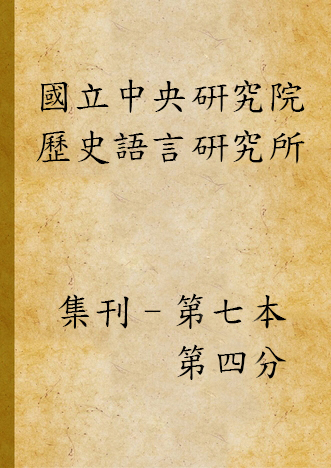 國立中央研究院
歷史語言研究所
集刊–第七本
第四分